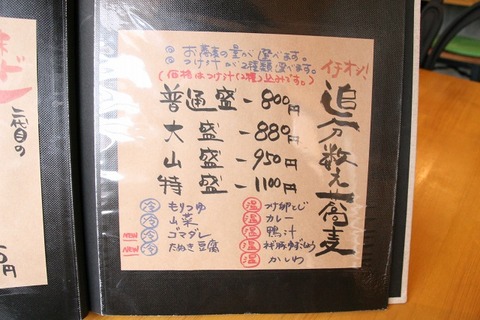 イチオシ!
追分数え蕎麦
◎ お蕎麦の量が選べます。
◎ つけ汁が2種類選べます。
(価格はつけ汁(2種)込みです。)
普通盛-800円
大盛-880円
山盛-950円
特盛-1100円
冷 もりつゆ
冷 山菜
冷 ゴマダレ
冷 たぬき豆腐
温 つけ卵とじ
温 カレー
温 鴨汁
温
温 かしわ
二代目の
円